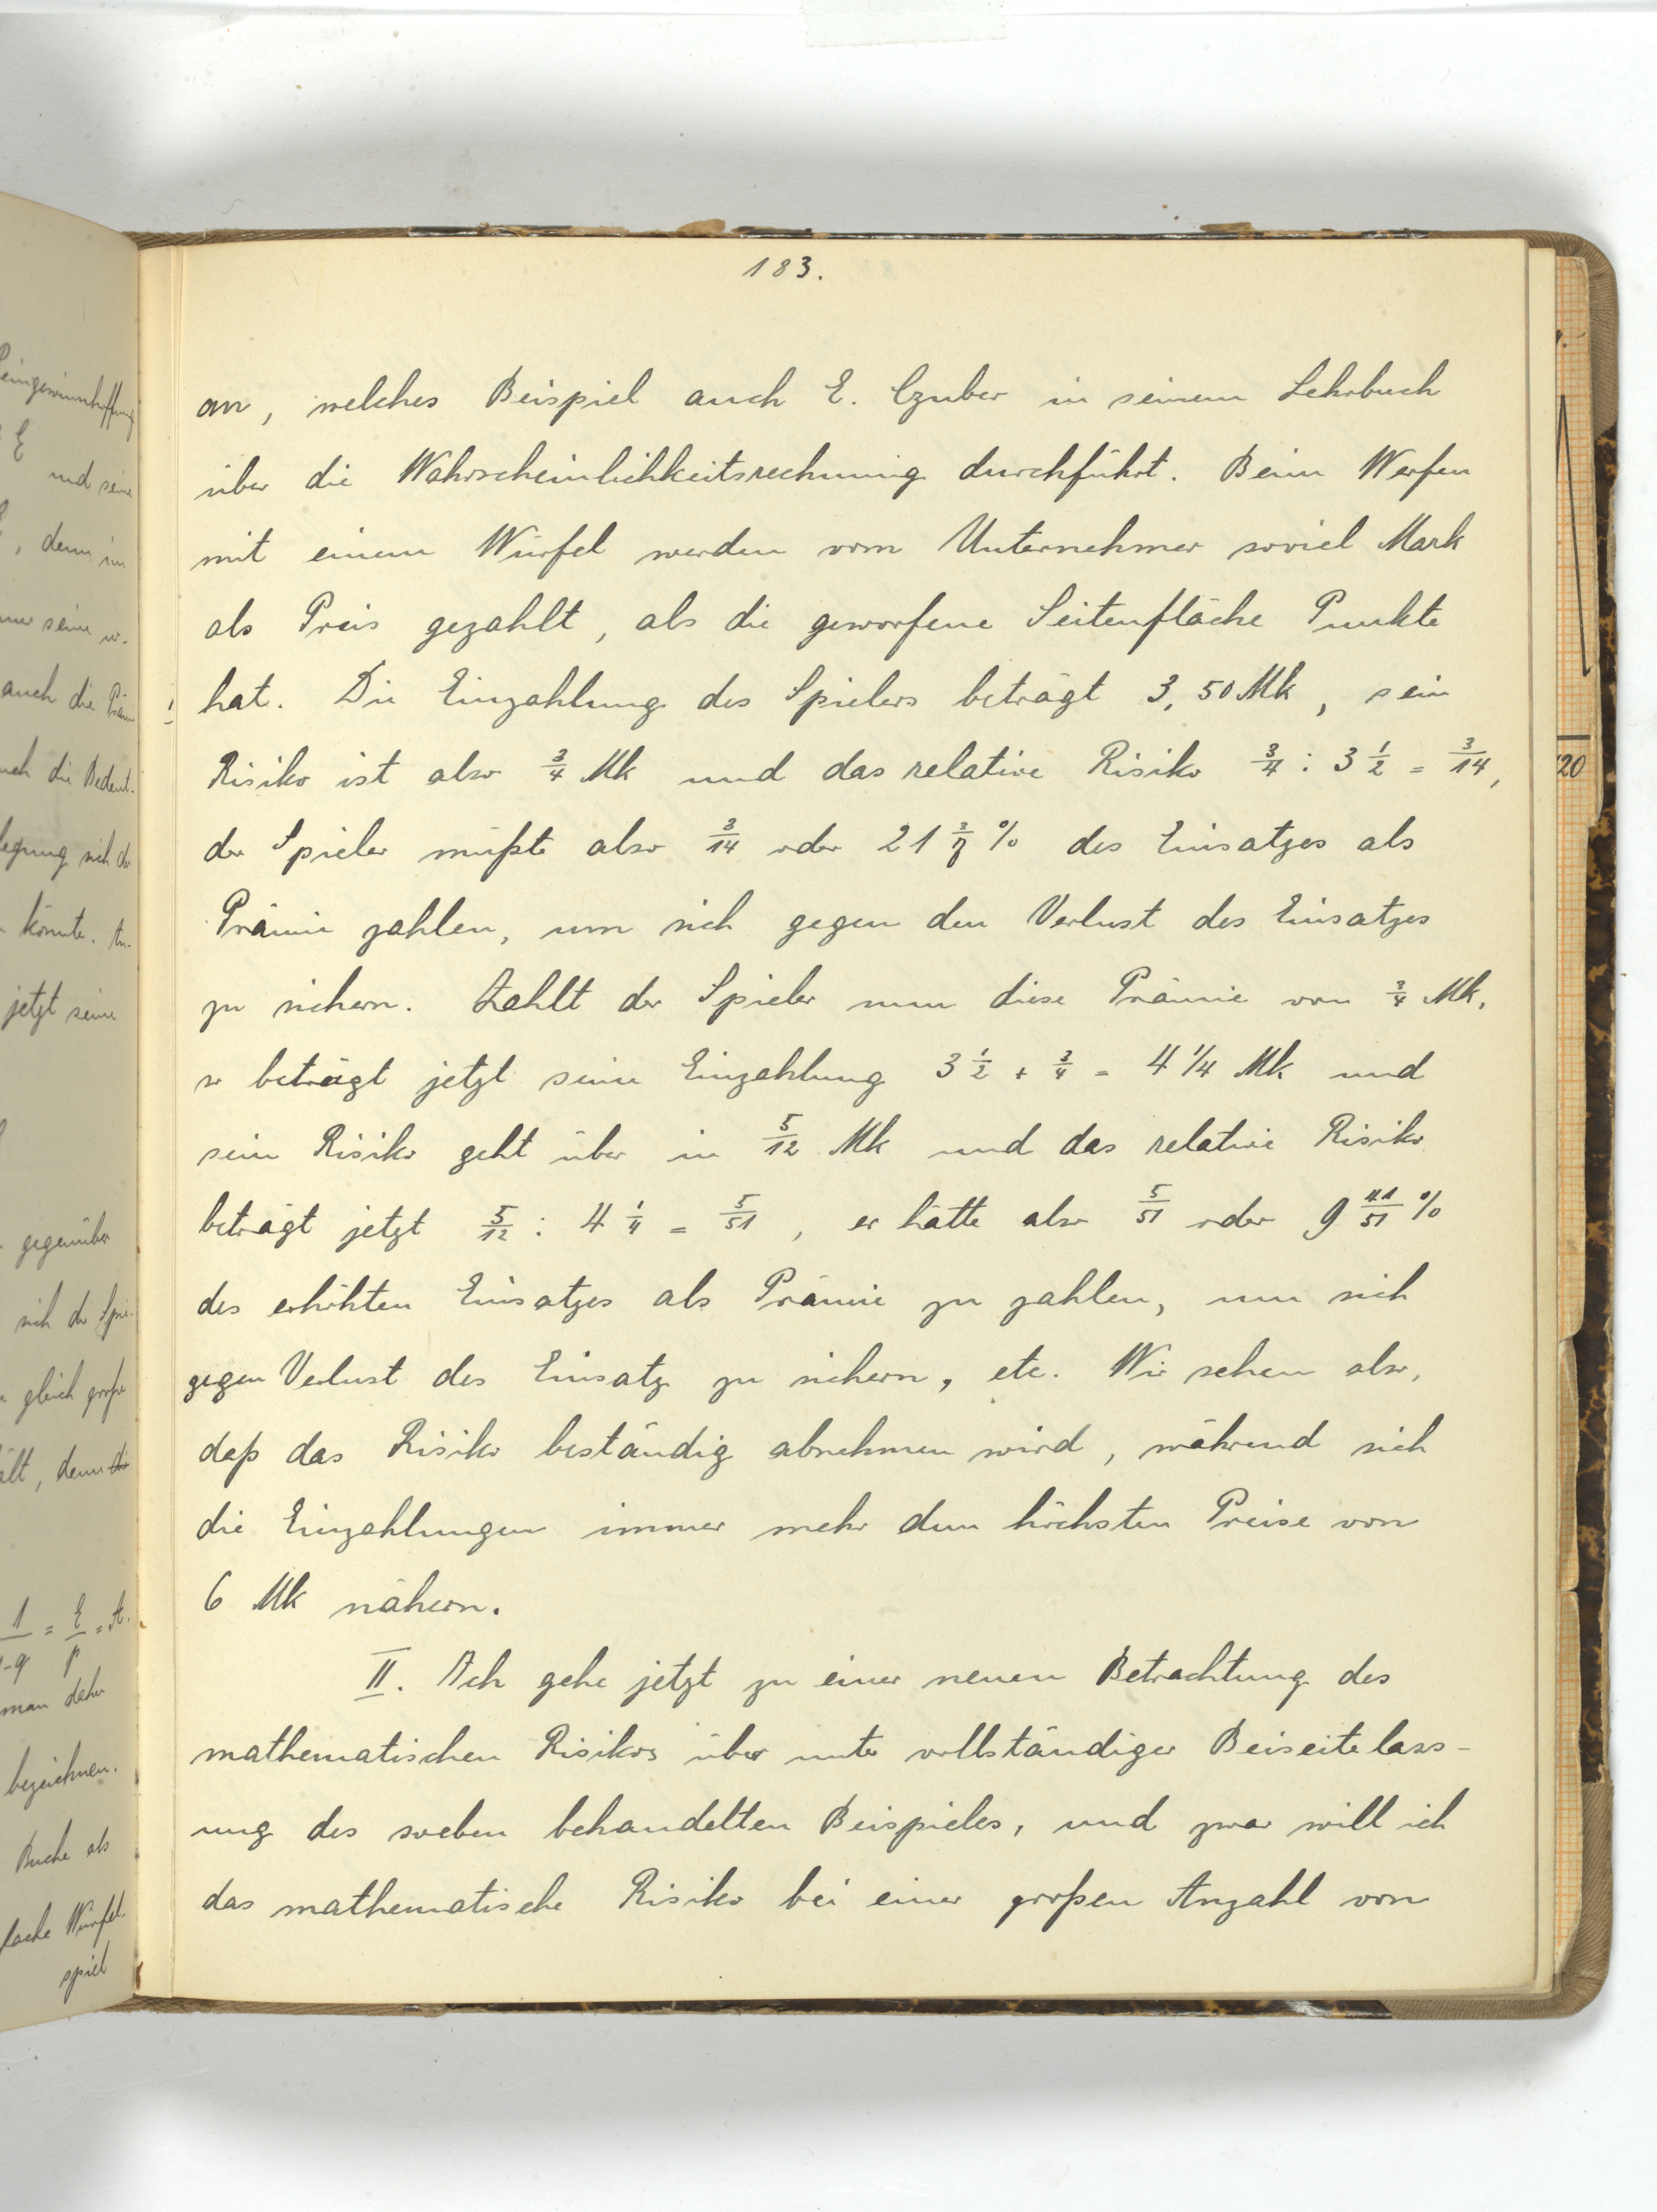 183.
an, welches Beispiel auch E. Czuber in seinem Lehrbuch
über die Wahrscheinlichkeitsrechnung durchführt. Beim Werfen
mit einem Würfel werden vom Unternehmer soviel Mark
als Preis gezahlt, als die geworfene Seitenfläche Punkte
hat. Die Einzahlung des Spielers beträgt 3,50 Mk, sein
Risiko ist also 3/4 Mk und das relative Risiko 3/4 : 3 1/2 = 3/14,
der Spieler müßte also 3/14 oder 21 3/7 % des Einsatzes als
Prämie zahlen, um sich gegen den Verlust des Einsatzes
zu sichern. Zahlt der Spieler nun diese Prämie von 3/4 Mk,
so beträgt jetzt seine Einzahlung 3 1/2 + 3/4 = 4 1/4 Mk und
sein Risiko geht über in 5/12 Mk und das relative Risiko
beträgt jetzt 5/12 : 4 1/4 = 5/51, er hätte also 5/51 oder 9 41/51 %
des erhöhten Einsatzes als Prämie zu zahlen, um sich
gegen Verlust des Einsatz zu sichern, etc. Wir sehen also,
daß das Risiko beständig abnehmen wird, während sich
die Einzahlungen immer mehr dem höchsten Preise von
6 Mk nähern.
II. Ich gehe jetzt zu einer neuen Betrachtung des
mathematischen Risikos über unter vollständiger Beiseitelass-
ung des soeben behandelten Beispieles, und zwar will ich
das mathematische Risiko bei einer großen Anzahl von
und seine
, denn im
auch die
könnte.
jetzt seine
gegenüber
sich der
gleich große
1 = E = A.
-q p
man daher
bezeichnen.
Buche als
Würfel-
spiel
20